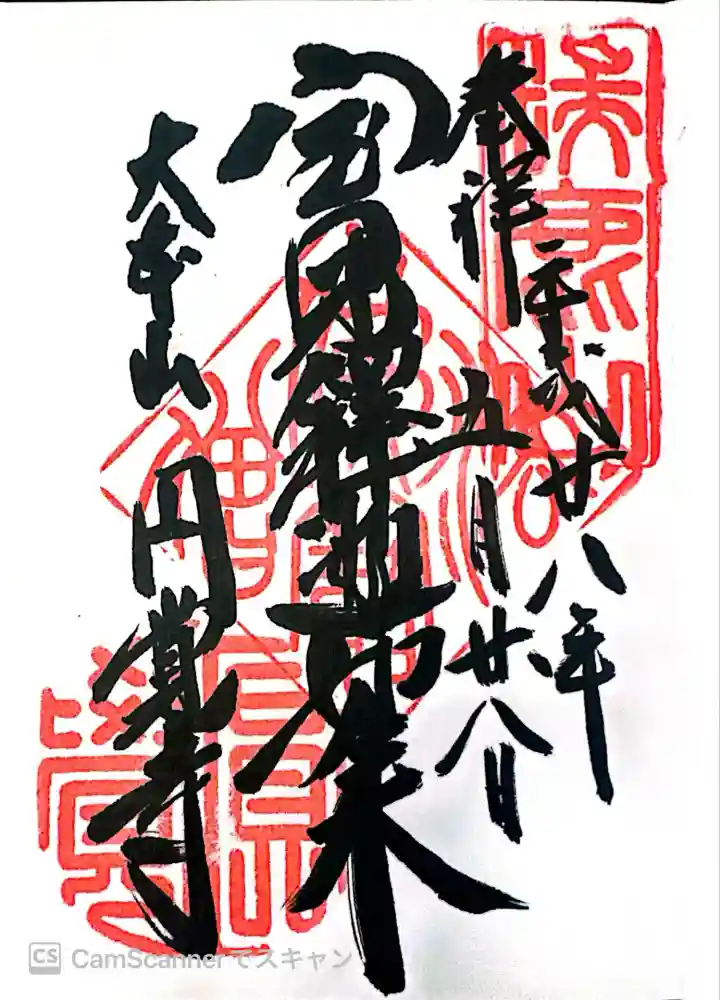 奉拝
平成廿八年
五月廿八日
宝冠釈迦如来
大本山
円覚寺
CS CamScannerでスキャン